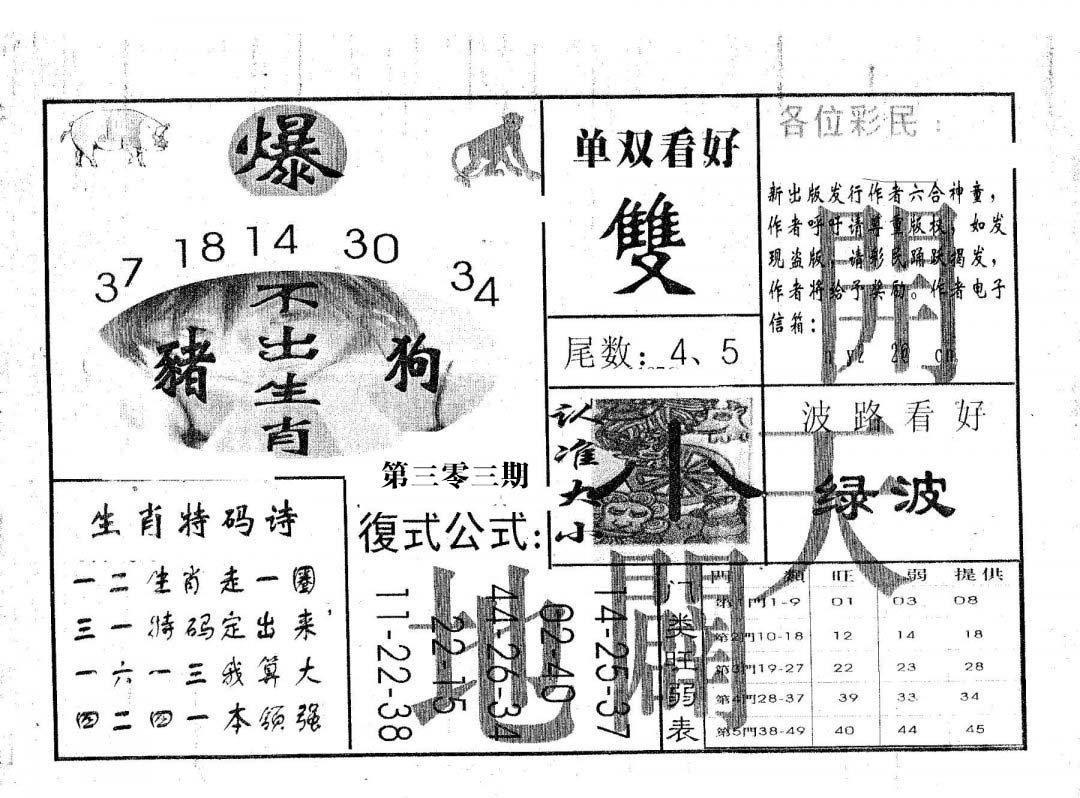 爆
37 18 14 30 34
不出生肖
豬
狗
第三零三期
单双看好
雙
尾数：4、5
各位彩民：
新出版发行作者六合神童，
作者呼吁请尊重版权，如发
现盗版，请彩民踊跃揭发，
作者将给予奖励。作者电子
信箱：
认准大小
小
波路看好
绿波
生肖特码诗
一二生肖走一圈
三一特码定出来
一六一三我算大
四二四一本领强
復式公式：
11-22-38
22-15
44-26-34
02-40
14-25-37
天
地
開
開
门类旺弱表
門類 旺 弱 提供
第1門1-9 01 03 08
第2門10-18 12 14 18
第3門19-27 22 23 28
第4門28-37 39 33 34
第5門38-49 40 44 45